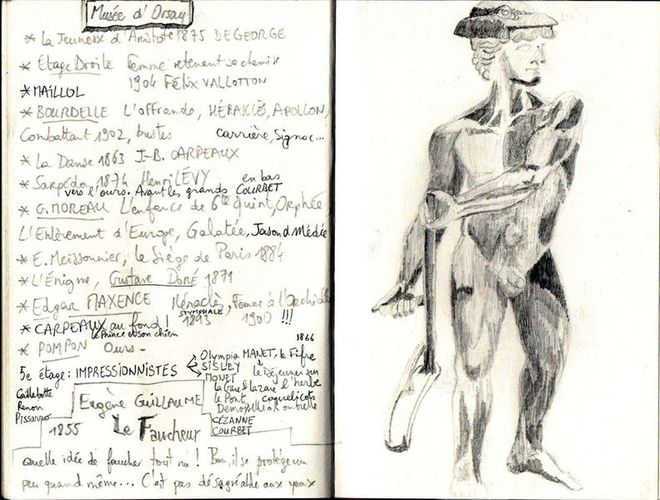 Musée d'Orsay
* La Jeunesse d'Aristote 1875 DEGEORGE
* Etage Droite Femme retenant sa chemise
1904 Félix VALLOTTON
* MAILLOL
* BOURDELLE L'offrande, HÉRAKLÈS, APOLLON,
Combattant 1902, bustes Carrière, Signac...
* La Danse 1863 J-B. CARPEAUX
* Sarpédon 1874 Henri LÉVY en bas
vers l'ours. Avant les grands COURBET
* G. MOREAU L'enfance de Ste Quint, Orphée
L'Enlèvement d'Europe, Galatée, Jason & Médée
* E. Meissonnier, le Siège de Paris 1884
* L'Énigme, Gustave Doré 1871
* Edgar MAXENCE Héraclès, Femme à l'Orchidée
STYMPHALE 1893 1900 !!!
* CARPEAUX au fond!
le Prince et son chien
* POMPON Ours -
1866
5e étage: IMPRESSIONNISTES
Olympia MANET, le Fifre
SISLEY le Déjeuner sur
MONET la Gare St Lazare l'herbe
le Pont, coquelicots
Demoiselle ombrelle
CÉZANNE
COURBET
Caillebotte
Renoir
Pissarro
Eugène GUILLAUME
1855 Le Faucheur
Quelle idée de faucher tout nu! Bon, il se protège un
peu quand même... C'est pas désagréable aux yeux